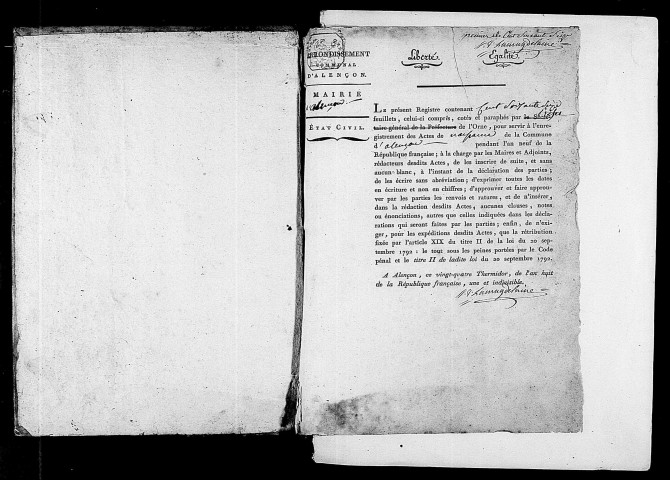 premier
ARRONDISSEMENT
COMMUNAL
D'ALENÇON.
Liberté.
Égalité.
MAIRIE
d'alençon
ÉTAT CIVIL.
LA présent Registre contenant Cent Soixante Seize
feuillets, celui-ci compris, cotés et paraphés par le Secré-
taire général de la Préfecture de l'Orne, pour servir à l'enre-
gistrement des Actes de naissance de la Commune
d'alençon pendant l'an neuf de la
République française; à la charge par les Maires et Adjoints,
rédacteurs desdits Actes, de les inscrire de suite, et sans
aucun blanc, à l'instant de la déclaration des parties;
de les écrire sans abréviation; d'exprimer toutes les dates
en écriture et non en chiffres; d'approuver et faire approu-
ver par les parties les renvois et ratures, et de n'insérer,
dans la rédaction desdits Actes, aucunes clauses, notes
ou énonciations, autres que celles indiquées dans les décla-
rations qui seront faites par les parties; enfin, de n'exi-
ger, pour les expéditions desdits Actes, que la rétribution
fixée par l'article XIX du titre II de la loi du 20 sep-
tembre 1792: le tout sous les peines portées par le Code
pénal et le titre II de ladite loi du 20 septembre 1792.
A Alençon, ce vingt-quatre Thermidor, de l'an huit
de la République française, une et indivisible.